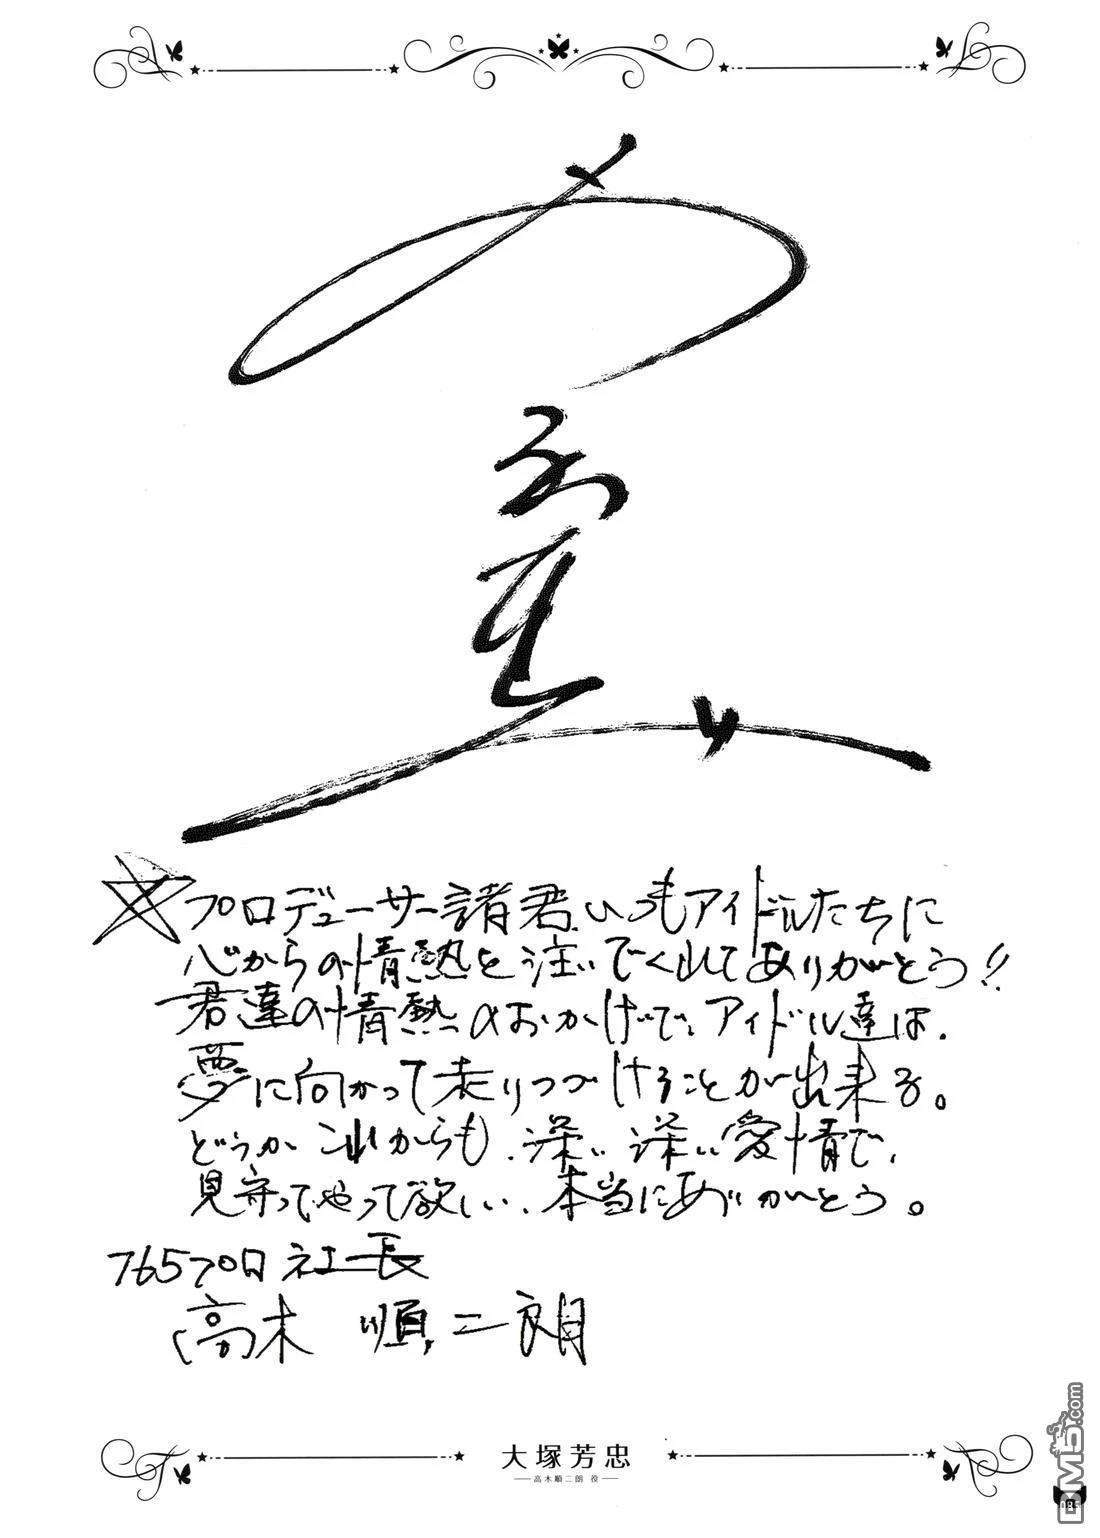 プロデューサー諸君、いつもアイドルたちに
心からの情熱を注いでくれてありがとう!!
君達の情熱のおかげで、アイドル達は、
夢に向かって走りつづけることが出来る。
どうかこれからも、深い深い愛情で、
見守ってやって欲しい、本当にありがとう。
765プロ 社長
高木 順二朗
大塚芳忠
高木順二朗 役
085
DM5.com